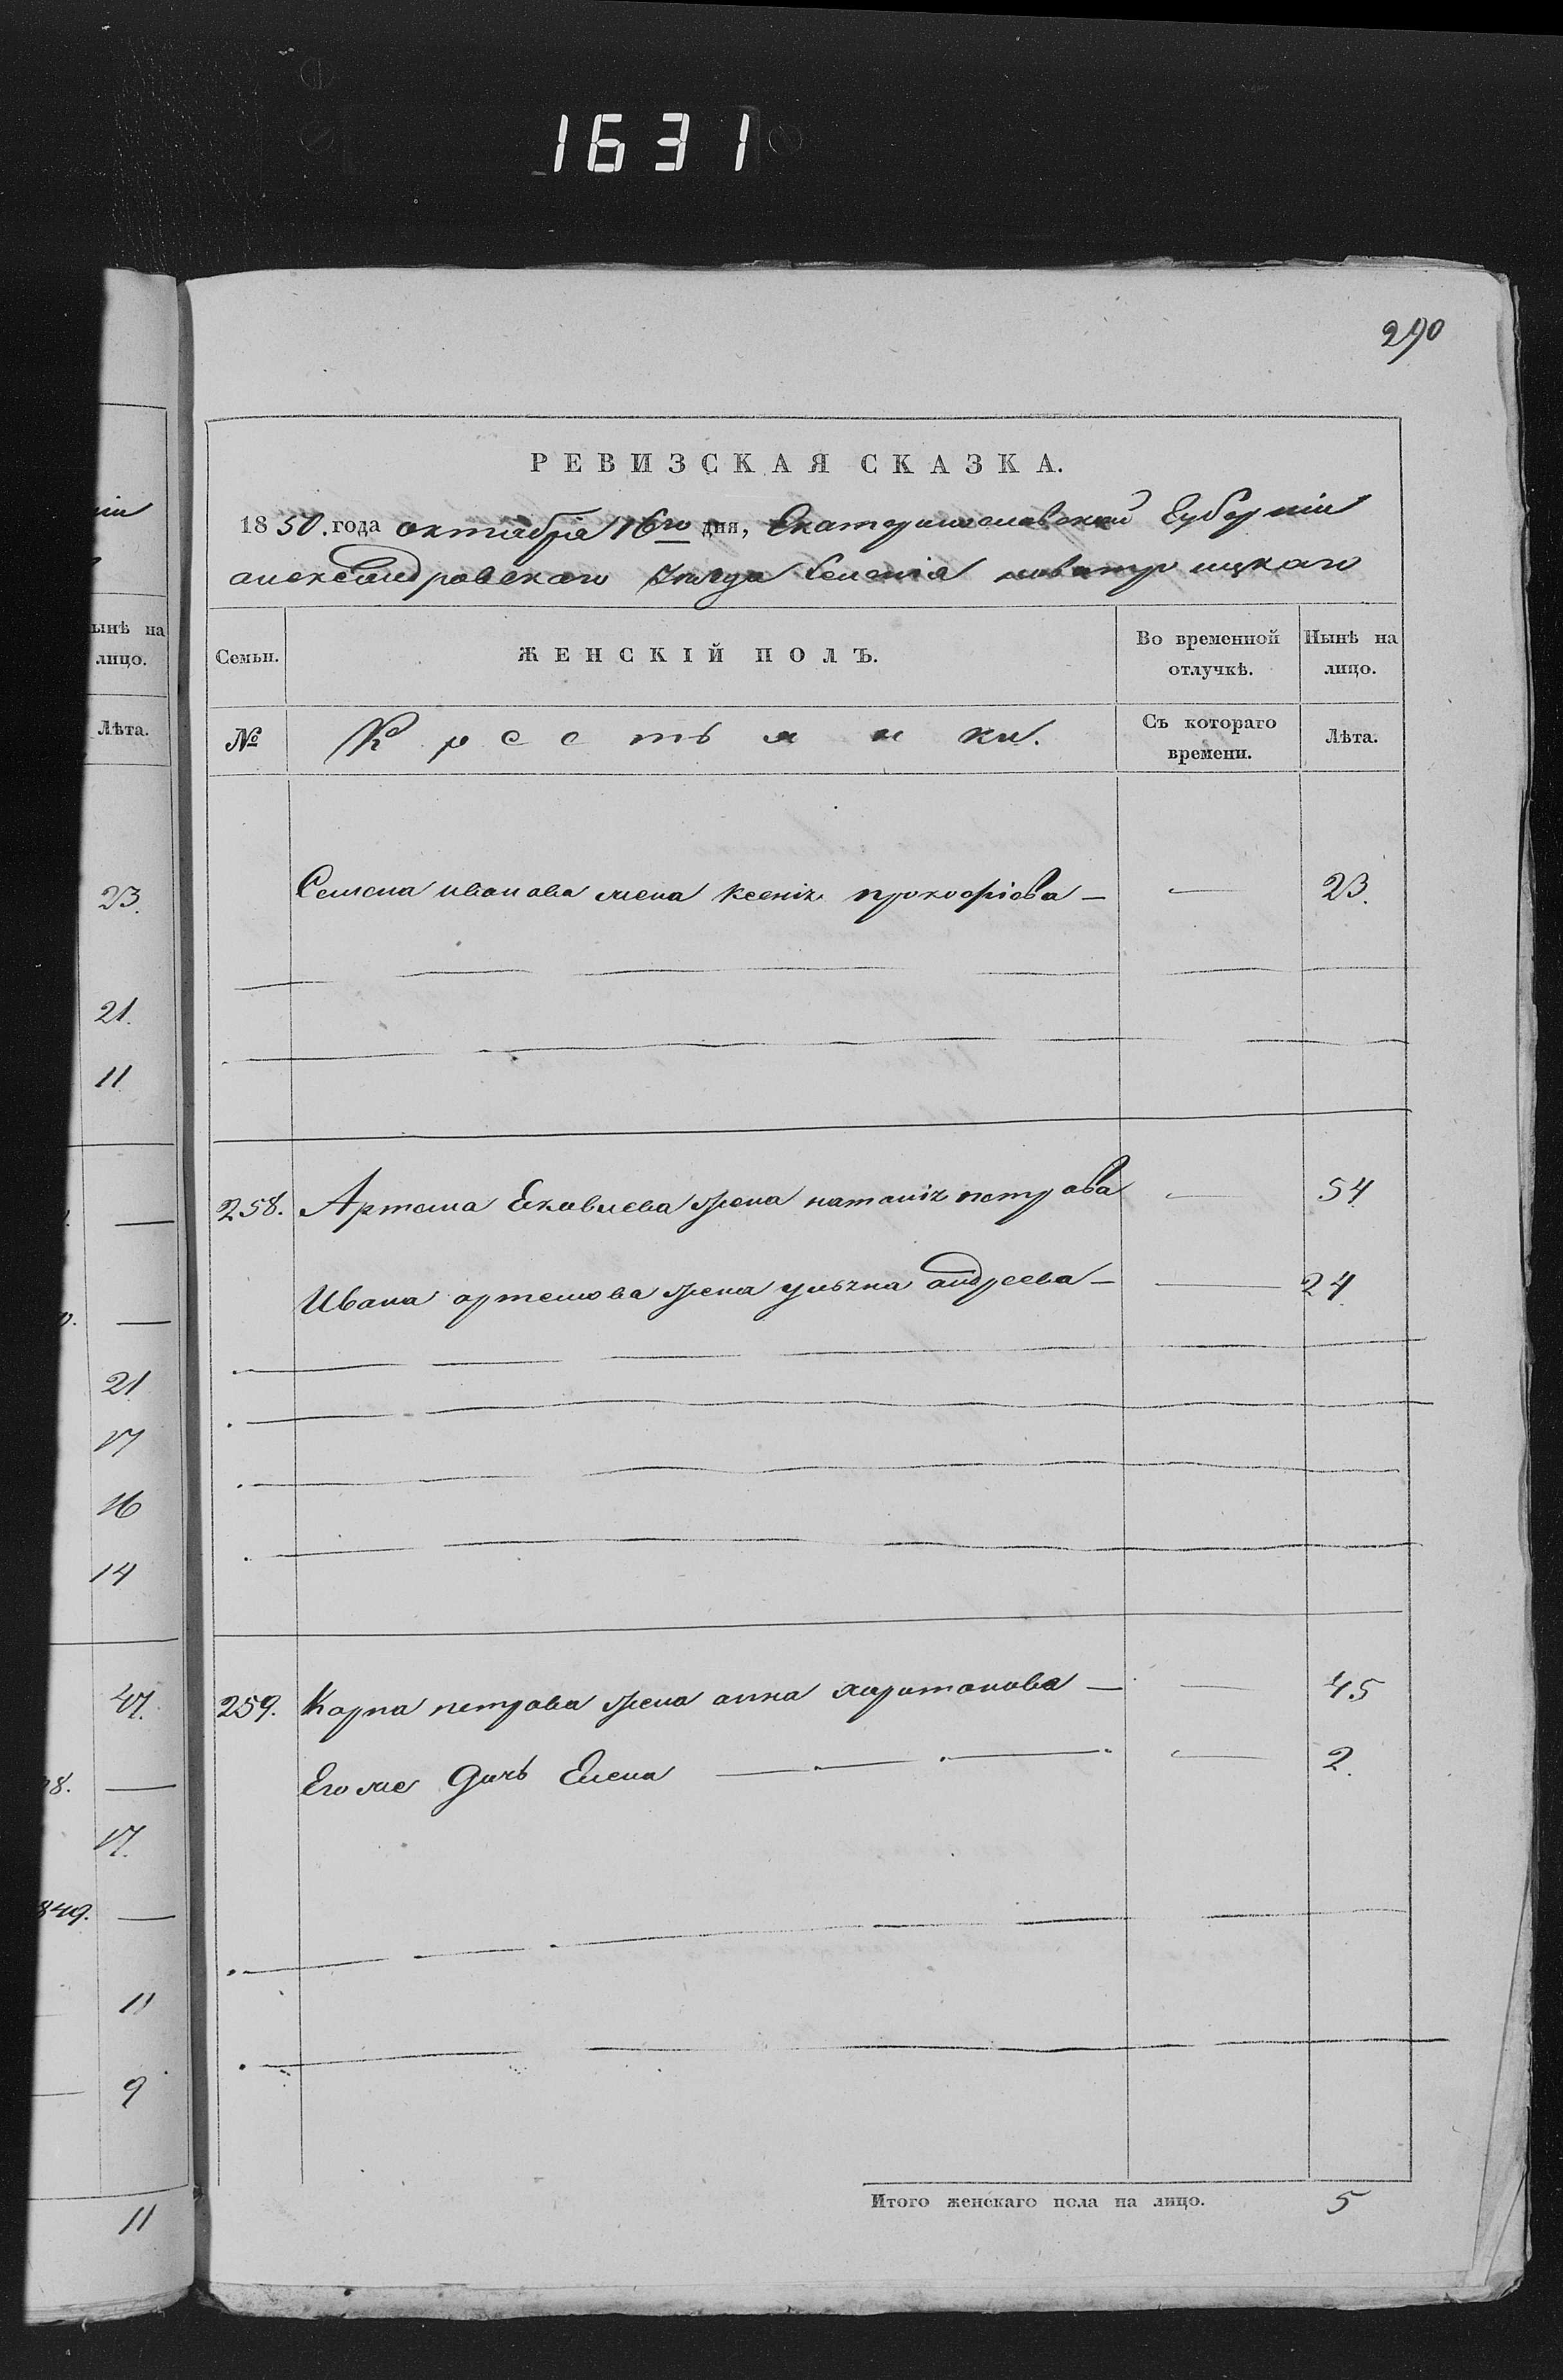 1631
ніи
ынѣ на
лицо.
Лѣта.
23.
21.
11
21
17
16
14
47.
8.
17.
849.
11
9
11
290
РЕВИЗСКАЯ СКАЗКА.
1850. года октября 16го дня, Екатеринославской Губерніи
александровского Уезда Селенія новотроицкаго
Семьи.
ЖЕНСКІЙ ПОЛЪ.
Во временной отлучкѣ.
Нынѣ на лицо.
№
Крестьянки.
Съ котораго времени.
Лѣта.
Семена иванова жена Ксенія прокофіева — — 23.
258. Артема Яковлева жена наталія петрова — 54
Ивана артемова жена ульяна андреева — — 24.
259. Карпа петрова жена анна харитонова — — 45
Его же дочь Елена — — 2.
Итого женскаго пола на лицо. 5